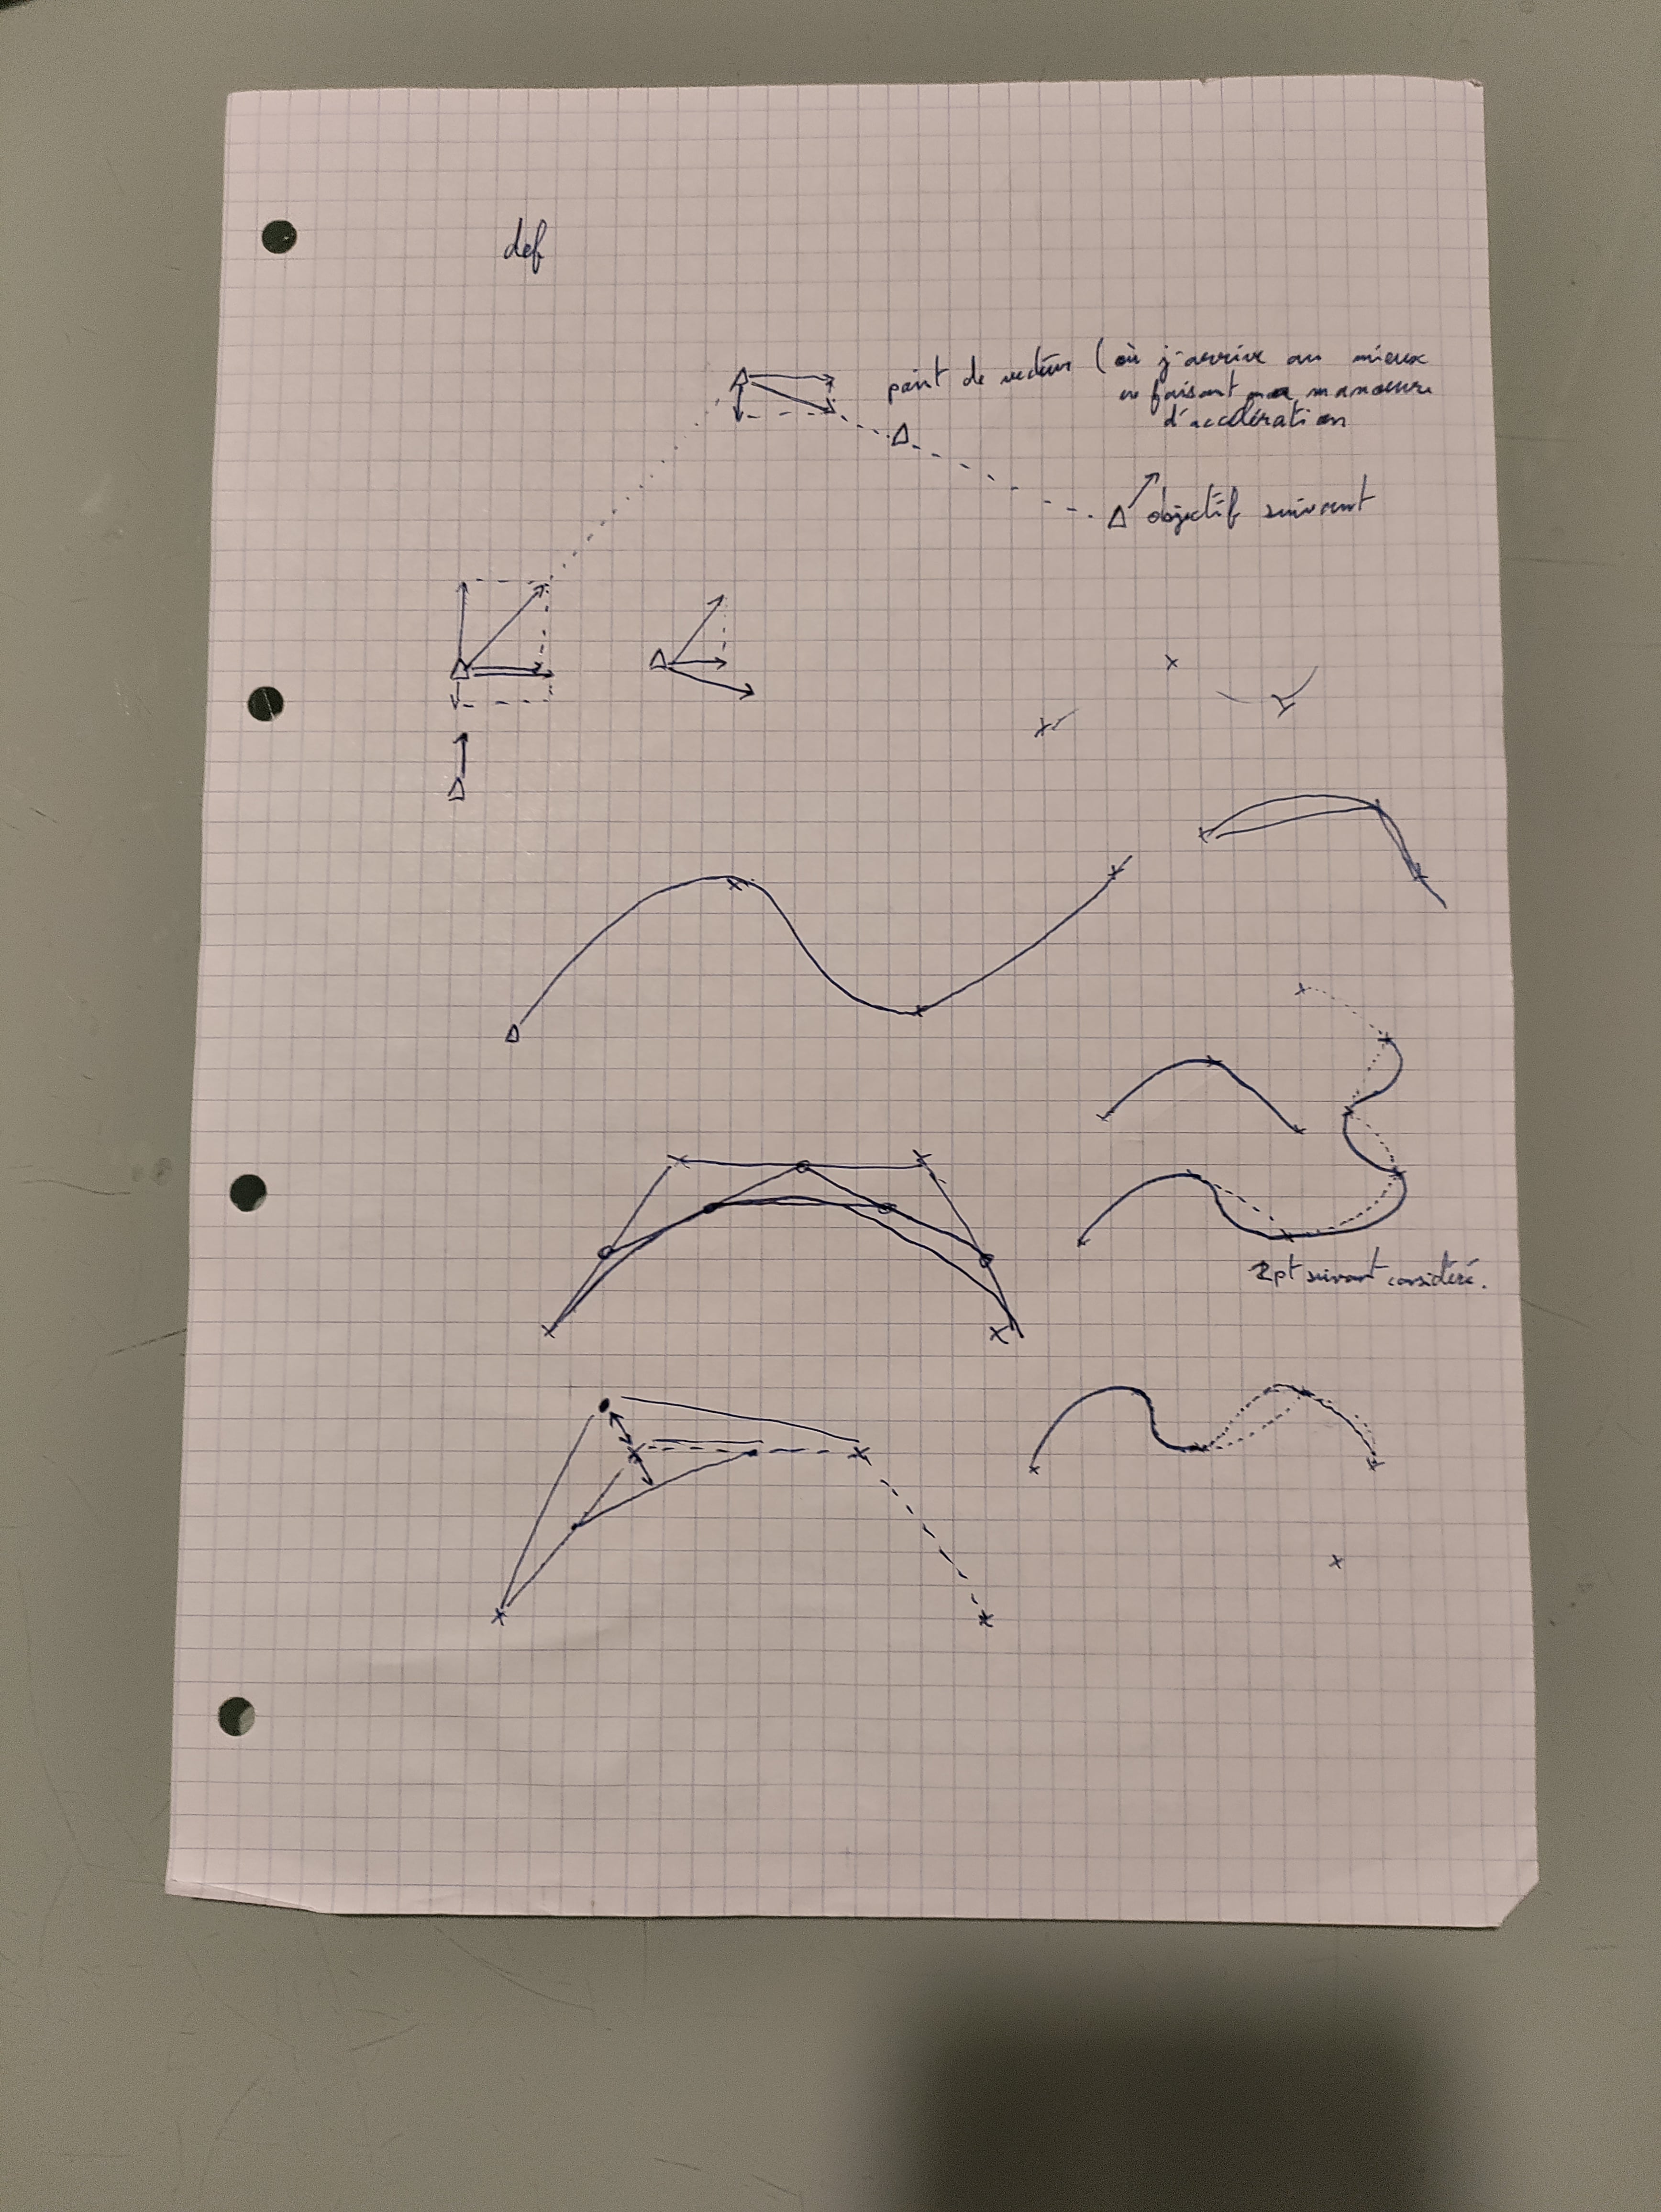 def
point de vecteur (où j'arrive au mieux
en faisant ma manoeuvre
d'accelération
objectif suivant
2pt suivant considéré.